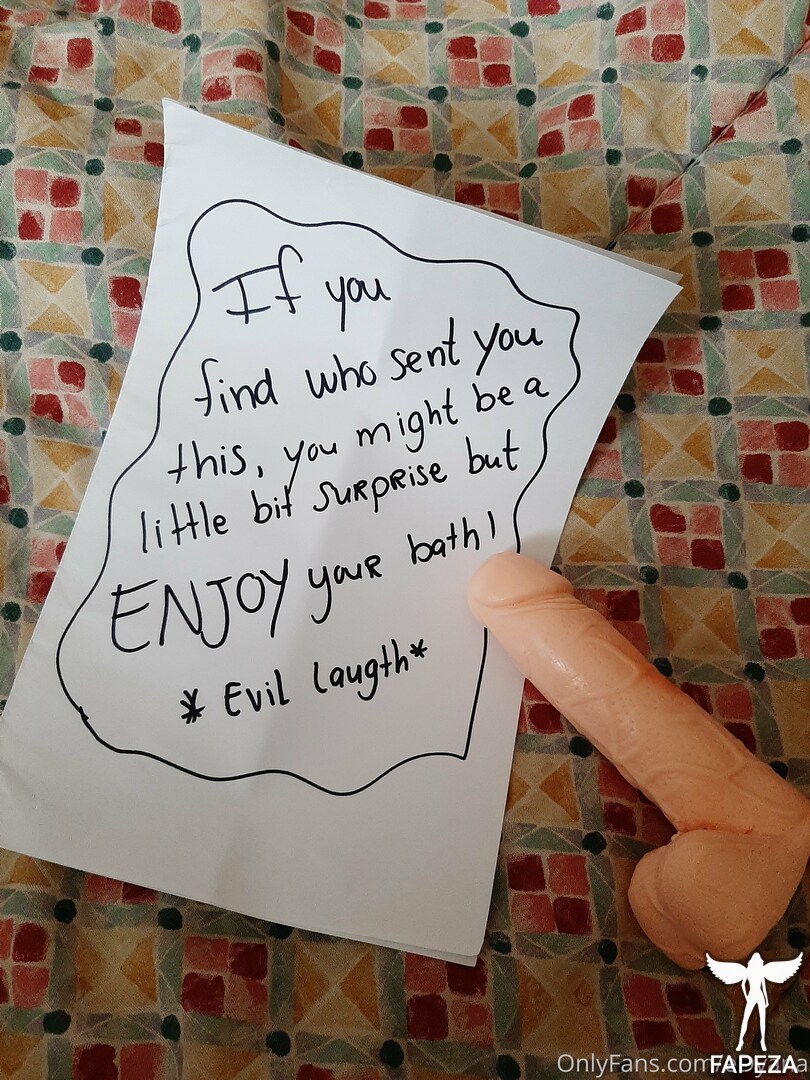 If you
find who sent you
this, you might be a
little bit surprise but
ENJOY your bath!
*Evil laugth*
FAPEZA